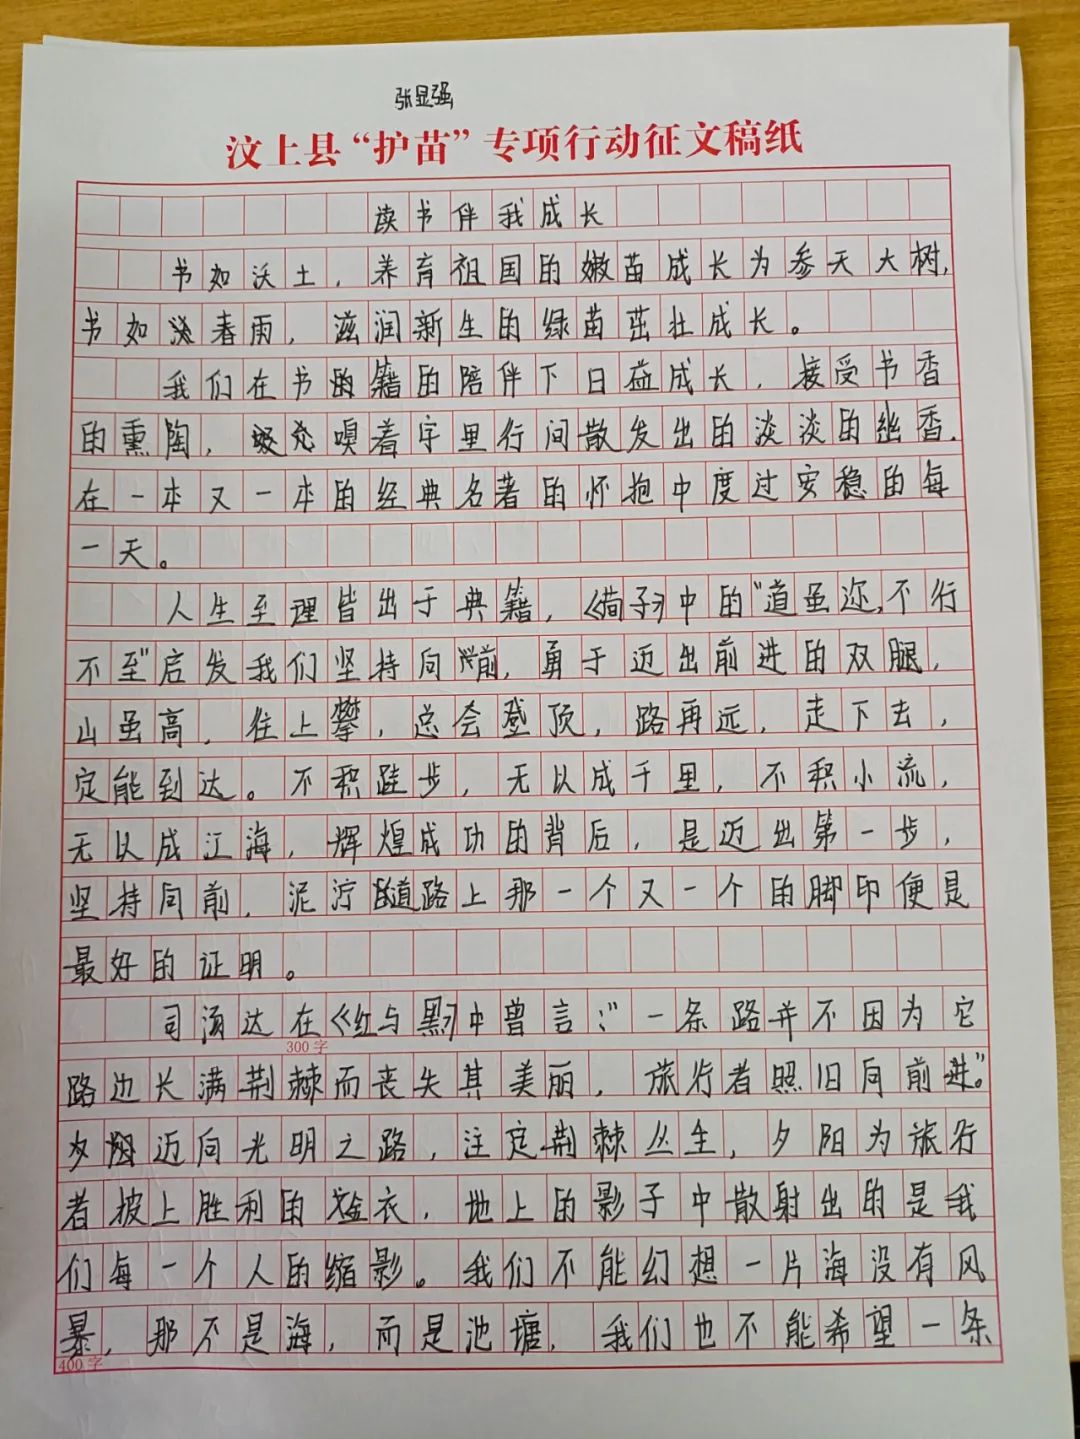 张显强
汶上县“护苗”专项行动征文稿纸
读书伴我成长
书如沃土，养育祖国的嫩苗成长为参天大树，
书如春雨，滋润新生的绿苗茁壮成长。
我们在书籍的陪伴下日益成长，接受书香
的熏陶，嗅着字里行间散发出的淡淡的幽香.
在一本又一本的经典名著的怀抱中度过安稳的每
一天。
人生至理皆出于典籍，《荀子》中的“道虽迩，不行
不至”启发我们坚持向前，勇于迈出前进的双腿，
山虽高，往上攀，总会登顶，路再远，走下去，
定能到达。不积跬步，无以成千里，不积小流，
无以成江海，辉煌成功的背后，是迈出第一步，
坚持向前，泥泞的道路上那一个又一个的脚印便是
最好的证明。
司汤达在《红与黑》中曾言：“一条路并不因为它
300字
路边长满荆棘而丧失其美丽，旅行者照旧向前进。”
迈向光明之路，注定荆棘丛生，夕阳为旅行
者披上胜利的金衣，地上的影子中散射出的是我
们每一个人的缩影。我们不能幻想一片海没有风
暴，那不是海，而是池塘，我们也不能希望一条
400字